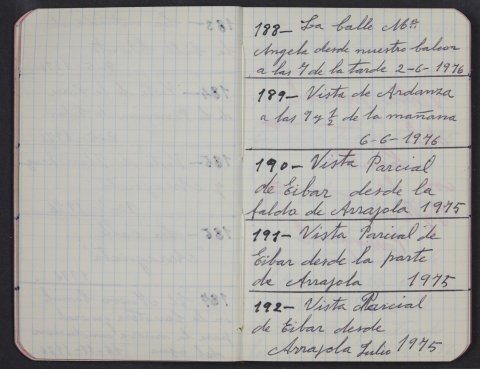 188- La Calle Mª
Angela desde nuestro balcon
a las 7 de la tarde 2-6-1976
189- Vista de Ardanza
a las 9 y ½ de la mañana
6-6-1976
190- Vista Parcial
de Eibar desde la
falda de Arrajola 1975
191- Vista Parcial de
Eibar desde la parte
de Arrajola 1975
192- Vista Parcial
de Eibar desde
Arrajola Julio 1975